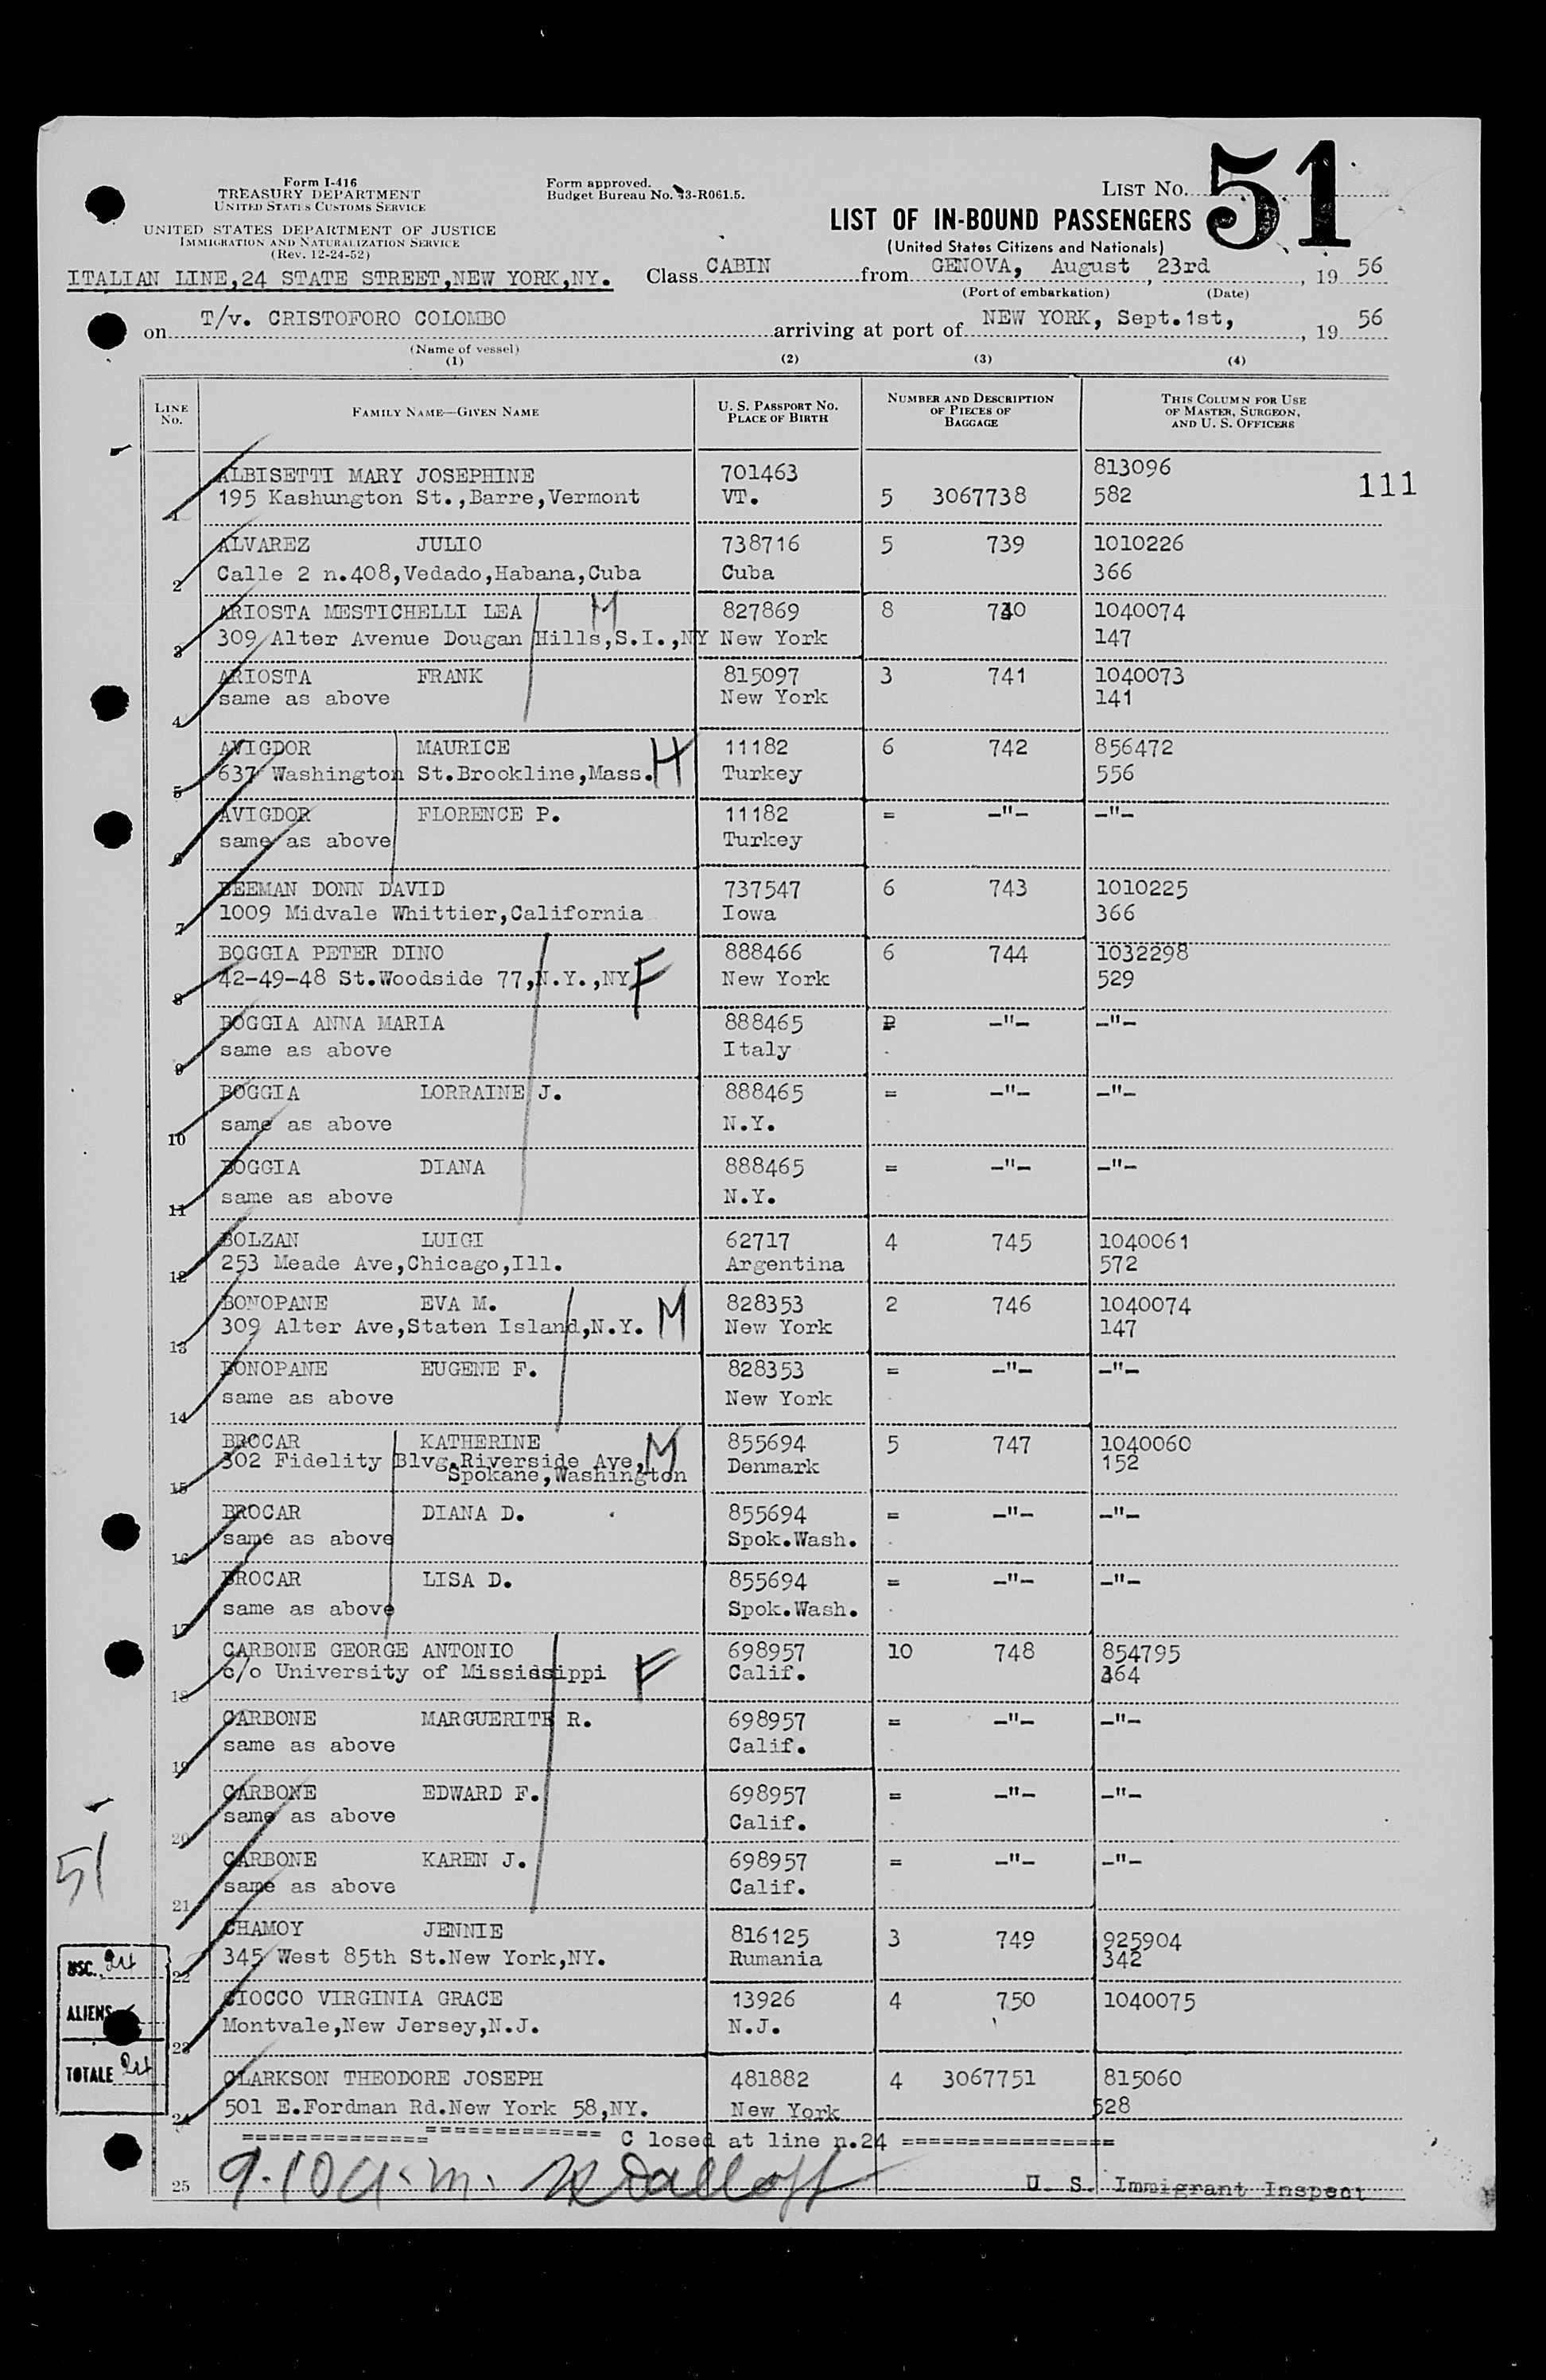 Form I-416
TREASURY DEPARTMENT
UNITED STATES CUSTOMS SERVICE
UNITED STATES DEPARTMENT OF JUSTICE
IMMIGRATION AND NATURALIZATION SERVICE
(Rev. 12-24-52)
Form approved.
Budget Bureau No. 43-R061.5.
LIST No. 51
LIST OF IN-BOUND PASSENGERS
(United States Citizens and Nationals)
ITALIAN LINE,24 STATE STREET,NEW YORK,NY. Class CABIN from GENOVA, August 23rd, 19 56
(Port of embarkation) (Date)
on T/v. CRISTOFORO COLOMBO arriving at port of NEW YORK, Sept.1st, 19 56
(Name of vessel)
(1) (2) (3) (4)
LINE No. FAMILY NAME—GIVEN NAME U. S. PASSPORT No. PLACE OF BIRTH NUMBER AND DESCRIPTION OF PIECES OF BAGGAGE THIS COLUMN FOR USE OF MASTER, SURGEON, AND U. S. OFFICERS
ALBISETTI MARY JOSEPHINE 701463 813096
1 195 Kashungton St.,Barre,Vermont VT. 5 3067738 582 111
ALVAREZ JULIO 738716 5 739 1010226
2 Calle 2 n.408,Vedado,Habana,Cuba Cuba 366
ARIOSTA MESTICHELLI LEA M 827869 8 740 1040074
3 309 Alter Avenue Dougan Hills,S.I.,NY New York 147
ARIOSTA FRANK 815097 3 741 1040073
4 same as above New York 141
AVIGDOR MAURICE H 11182 6 742 856472
5 637 Washington St.Brookline,Mass. Turkey 556
AVIGDOR FLORENCE P. 11182 = -"- -"-
6 same as above Turkey
BEEMAN DONN DAVID 737547 6 743 1010225
7 1009 Midvale Whittier,California Iowa 366
BOGGIA PETER DINO F 888466 6 744 1032298
8 42-49-48 St.Woodside 77,N.Y.,NY New York 529
BOGGIA ANNA MARIA 888465 -"- -"-
9 same as above Italy
BOGGIA LORRAINE J. 888465 = -"- -"-
10 same as above N.Y.
BOGGIA DIANA 888465 = -"- -"-
11 same as above N.Y.
BOLZAN LUIGI 62717 4 745 1040061
12 253 Meade Ave,Chicago,Ill. Argentina 572
BONOPANE EVA M. M 828353 2 746 1040074
13 309 Alter Ave,Staten Island,N.Y. New York 147
BONOPANE EUGENE F. 828353 = -"- -"-
14 same as above New York
BROCAR KATHERINE M 855694 5 747 1040060
302 Fidelity Blvg.Riverside Ave, Denmark 152
15 Spokane,Washington
BROCAR DIANA D. 855694 = -"- -"-
16 same as above Spok.Wash.
BROCAR LISA D. 855694 = -"- -"-
17 same as above Spok.Wash.
CARBONE GEORGE ANTONIO F 698957 10 748 854795
18 c/o University of Mississippi Calif. 364
CARBONE MARGUERITE R. 698957 = -"- -"-
19 same as above Calif.
CARBONE EDWARD F. 698957 = -"- -"-
20 same as above Calif.
CARBONE KAREN J. 698957 = -"- -"-
21 same as above Calif.
51
CHAMOY JENNIE 816125 3 749 925904
22 345 West 85th St.New York,NY. Rumania 342
CIOCCO VIRGINIA GRACE 13926 4 750 1040075
23 Montvale,New Jersey,N.J. N.J.
CLARKSON THEODORE JOSEPH 481882 4 3067751 815060
24 501 E.Fordman Rd.New York 58,NY. New York 528
USC. 24
ALIENS
TOTALE 24
============================ C losed at line n.24 ================
25 9.10 a.m. U. S. Immigrant Inspect